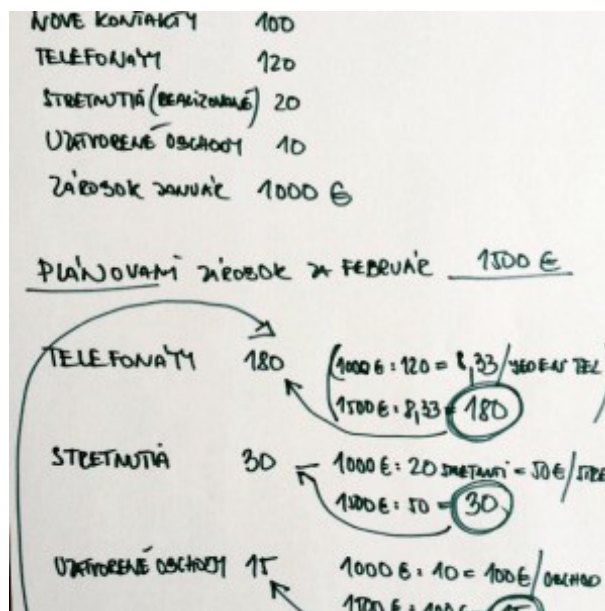 NOVÉ KONTAKTY 100
TELEFONÁTY 120
STRETNUTIA (REALIZOVANÉ) 20
UZATVORENÉ OBCHODY 10
ZÁROBOK JANUÁR 1000 €
PLÁNOVANÝ ZÁROBOK ZA FEBRUÁR 1500 €
TELEFONÁTY 180 (1000 € : 120 = 8,33 / JEDEN TEL
1500 € : 8,33 = 180)
STRETNUTIA 30 – 1000 € : 20 STRETNUTÍ = 50 € / STRE
1500 € : 50 = 30
UZATVORENÉ OBCHODY 15 1000 € : 10 = 100 € / OBCHOD
1500 € : 100 € = 15